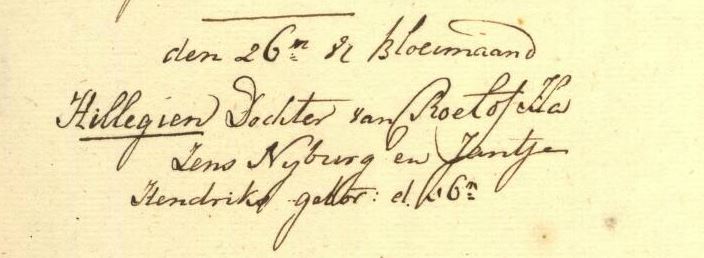 den 26n Bloeimaand
Hillegien Dochter van Roelof Ha
Zens Nyburg en Jantje
Hendriks gebor: d. 16n